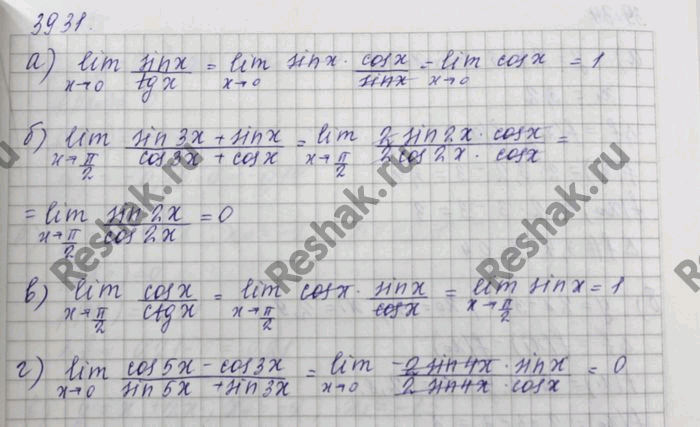 3931.
а) lim x→0 sinx/tgx = lim x→0 sinx · cosx/sinx = lim x→0 cosx = 1
б) lim x→π/2 (sin3x + sinx)/(cos3x + cosx) = lim x→π/2 (2 sin2x · cosx)/(2 cos2x · cosx) =
= lim x→π/2 sin2x/cos2x = 0
в) lim x→π/2 cosx/ctgx = lim x→π/2 cosx · sinx/cosx = lim x→π/2 sinx = 1
г) lim x→0 (cos5x - cos3x)/(sin5x + sin3x) = lim x→0 (-2 sin4x · sinx)/(2 sin4x · cosx) = 0
Reshak.ru
Reshak.ru
Reshak.ru
Reshak.ru